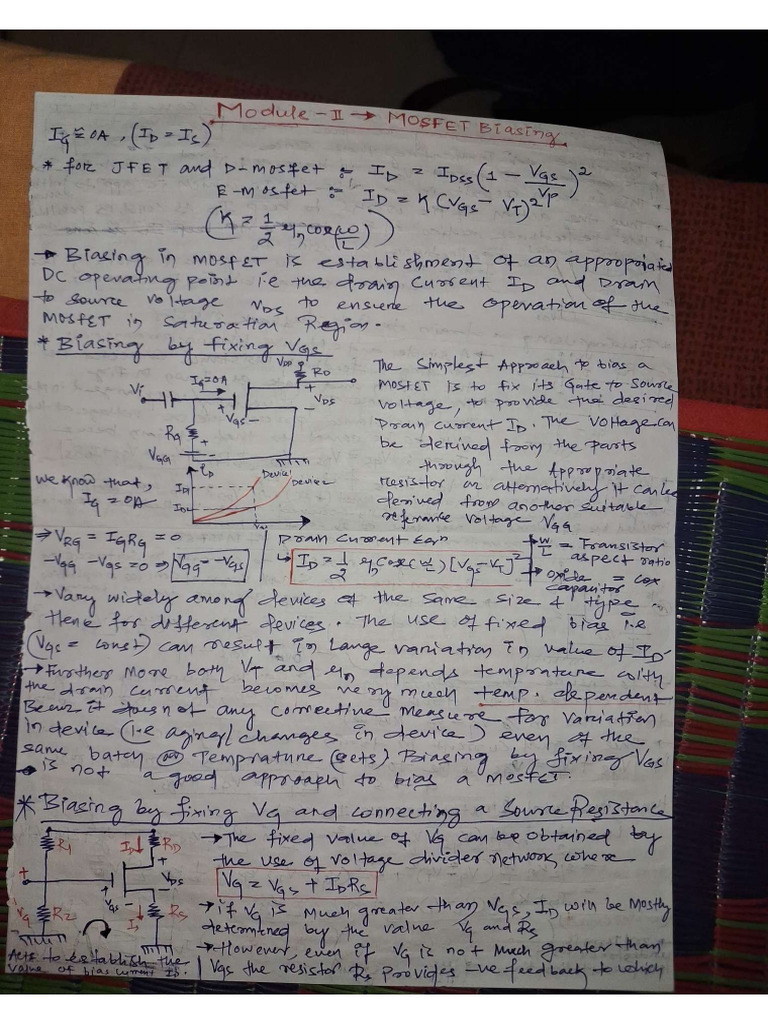 Module-II → MOSFET Biasing
IG ≅ 0A, (ID = IS)
* for JFET and D-mosfet :- ID = IDSS(1 - VGS/VP)²
E-mosfet :- ID = K(VGS - VT)²
(K = 1/2 μn Cox(ω/L))
→ Biasing in MOSFET is establishment of an appropriated
DC operating point i.e the drain current ID and Drain
to source voltage VDS to ensure the operation of the
MOSFET in Saturation Region.
* Biasing by fixing VGS
VDD
RD
Vi
IG=0A
+
VDS
-
+
VGS
-
RG
+
VGG
The Simplest Approach to bias a
MOSFET is to fix its Gate to Source
voltage, to provide the desired
Drain Current ID. The Voltage can
be derived from the parts
through the Appropriate
resistor or alternatively it can be
derived from another suitable
reference voltage VGG
we know that,
IG = 0A
ID
ID1
ID2
Device1
Device2
VGS
⇒ VRG = IGRG = 0
-VGG -VGS = 0 ⇒ VGG = -VGS
Drain Current Eqn
↳ ID = 1/2 μn Cox(ω/L) [VGS-VT]²
W/L = Transistor
aspect ratio
Oxide capacitor = Cox
→ Vary widely among devices of the same size & type.
Hence for different devices. The use of fixed bias i.e
(VGS = const) can result in large variation in value of ID.
→ Further more both VT and μn depends temprature with
the drain current becomes very much temp. dependent
Becuz it doesn of any corrective measure for variation
in device (i.e aging/changes in device) even of the
same batch or Temprature (sets) Biasing by fixing VGS
is not a good approach to bias a MOSFET.
* Biasing by fixing VG and connecting a Source Resistance
R1
ID
RD
+
VDS
-
+
VGS
-
+
VG
R2
IS
RS
-
Acts to establish the
value of bias current ID.
→ The fixed value of VG can be obtained by
the use of voltage divider network, where
VG = VGS + IDRS
→ if VG is much greater than VGS, ID will be mostly
determined by the value VG and RS
→ However, even if VG is not much greater than
VGS the resistor RS provides -ve feedback to which